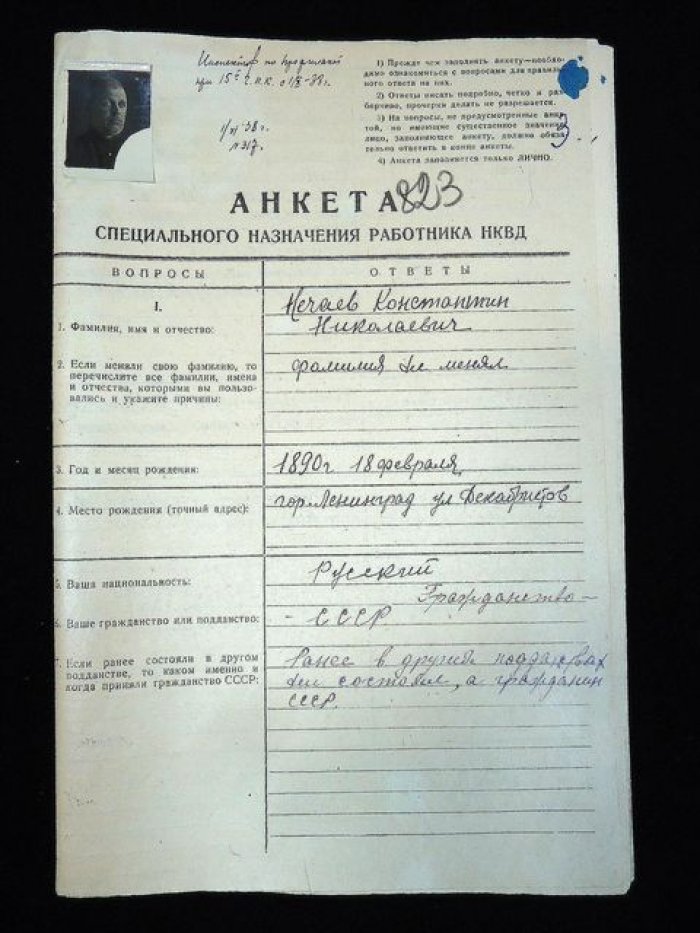 Инспектор по
при 15
1/XI-38 г.
№ 317.
1) Прежде чем заполнять анкету—необхо-
димо ознакомиться с вопросами для правиль-
ного ответа на них.
2) Ответы писать подробно, четко и раз-
борчиво, прочерки делать не разрешается.
3) На вопросы, не предусмотренные анке-
той, но имеющие существенное значение
лицо, заполняющее анкету, должно обяза-
тельно ответить в конце анкеты.
4) Анкета заполняется только ЛИЧНО.
3
АНКЕТА 823
СПЕЦИАЛЬНОГО НАЗНАЧЕНИЯ РАБОТНИКА НКВД
ВОПРОСЫ
ОТВЕТЫ
I.
1. Фамилия, имя и отчество:
Нечаев Константин
Николаевич
2. Если меняли свою фамилию, то
перечислите все фамилии, имена
и отчества, которыми вы пользо-
вались и укажите причины:
фамилия не менял
3. Год и месяц рождения:
1890 г 18 февраля
4. Место рождения (точный адрес):
гор. Ленинград ул Декабристов
5. Ваша национальность:
Русский
6. Ваше гражданство или подданство:
Гражданство –
- СССР
7. Если ранее состояли в другом
подданстве, то каком именно и
когда приняли гражданство СССР:
Ранее в других подданствах
не состоял, а гражданин
СССР.